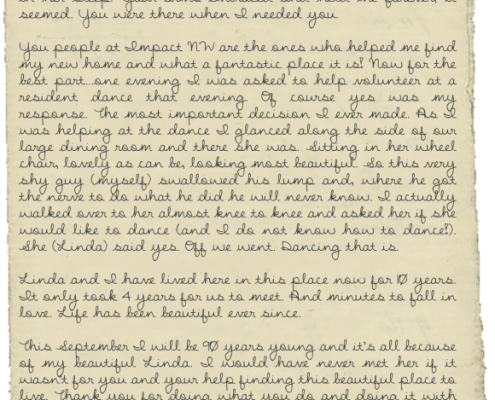 seemed. You were there when I needed you.
You people at Impact NW are the ones who helped me find
my new home and what a fantastic place it is! Now for the
best part...one evening I was asked to help volunteer at a
resident dance that evening. Of course yes was my
response. The most important decision I ever made. As I
was helping at the dance I glanced along the side of our
large dining room and there she was. Sitting in her wheel
chair, lovely as can be, looking most beautiful. So this very
shy guy (myself) swallowed his lump and, where he got
the nerve to do what he did he will never know. I actually
walked over to her almost knee to knee and asked her if she
would like to dance (and I do not know how to dance!).
She (Linda) said yes. Off we went. Dancing that is.
Linda and I have lived here in this place now for 10 years.
It only took 4 years for us to meet. And minutes to fall in
love. Life has been beautiful ever since.
This September I will be 90 years young and it's all because
of my beautiful Linda. I would have never met her if it
wasn't for you and your help finding this beautiful place to
live. Thank you for doing what you do and doing it with